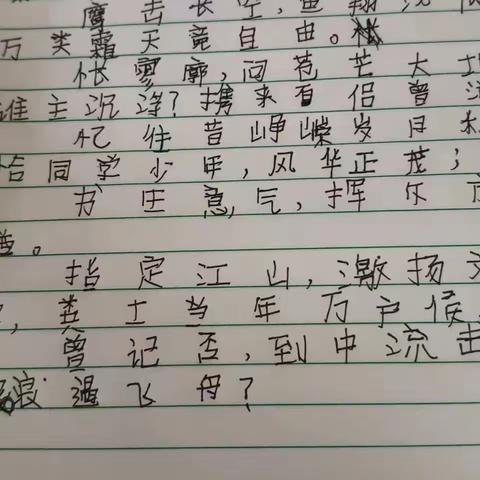 击长空,鱼翔浅
万类霜天竟自由。
怅寥廓,问苍茫大地
谁主沉浮?携来百侣曾游
忆往昔峥嵘岁月
恰同学少年,风华正茂;
书生意气,挥斥方
遒。
指定江山,激扬文
,粪土当年万户侯
曾记否,到中流击
浪遏飞舟?